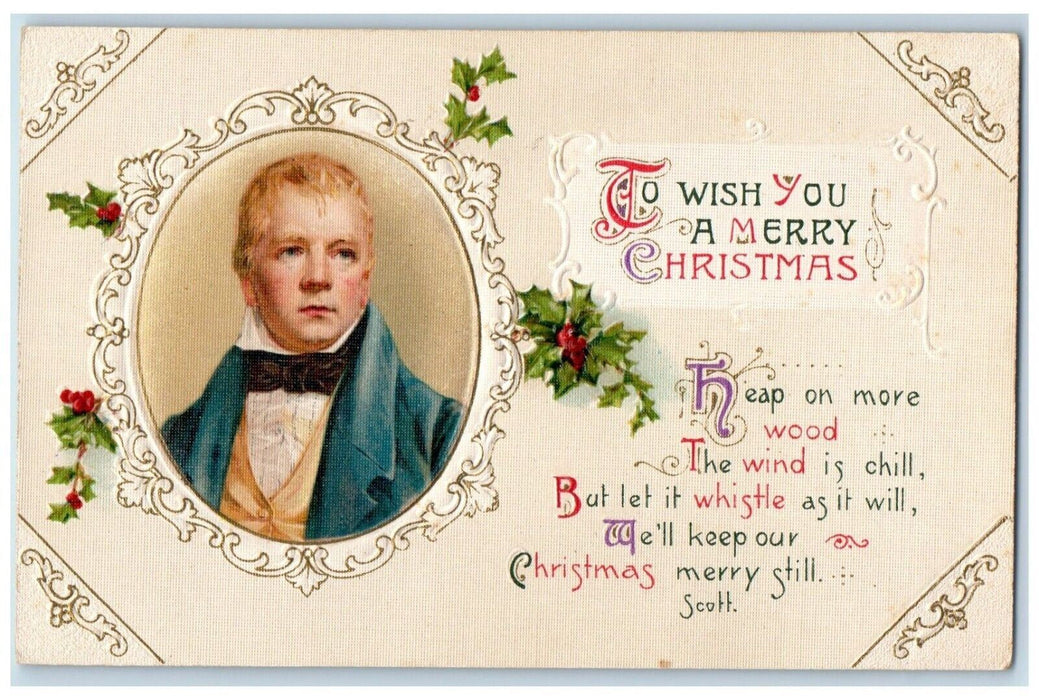 To WISH YOU
A MERRY
CHRISTMAS
Heap on more
wood
The wind is chill,
But let it whistle as it will,
We'll keep our
Christmas merry still.
Scott.